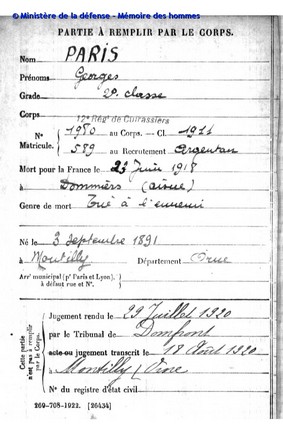 © Ministère de la défense - Mémoire des hommes
PARTIE À REMPLIR PAR LE CORPS.
Nom PARIS
Prénoms Georges
Grade 2e classe
Corps 12e Régt de Cuirassiers
N° 1980 au Corps. — Cl. 1911
Matricule. 589 au Recrutement Argentan
Mort pour la France le 23 Juin 1918
à Dommiers (aisne)
Genre de mort Tué à l'ennemi
Né le 3 Septembre 1891
à Montilly Département Orne
Arrt municipal (pr Paris et Lyon),
à défaut rue et N°.
Cette partie n'est pas à remplir par le Corps.
Jugement rendu le 29 Juillet 1920
par le Tribunal de Domfront
acte ou jugement transcrit le 18 Août 1920
à Montilly Orne
N° du registre d'état civil
269-708-1922. [26434]